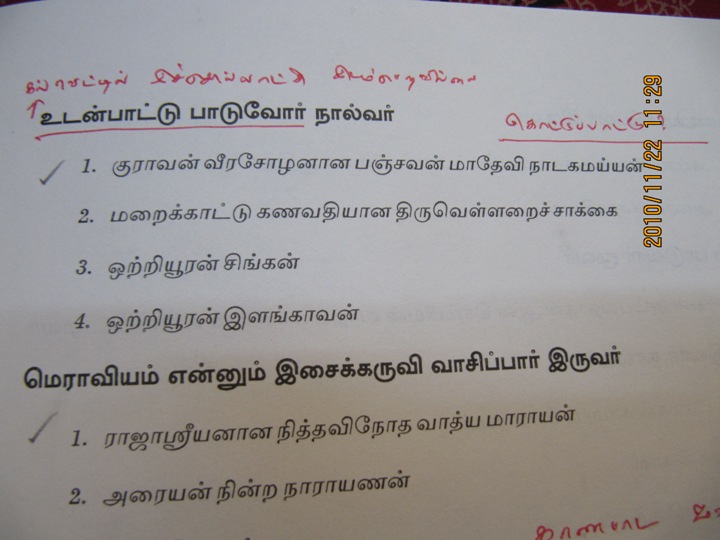 கல்வெட்டில் இச்சொல்லாட்சி இடம்பெறவில்லை
உடன்பாட்டு பாடுவோர் நால்வர்
கொட்டுப்பாட்டு?
1. குராவன் வீரசோழனான பஞ்சவன் மாதேவி நாடகமய்யன்
2. மறைக்காட்டு கணவதியான திருவெள்ளறைச்சாக்கை
3. ஒற்றியூரன் சிங்கன்
4. ஒற்றியூரன் இளங்காவன்
மெராவியம் என்னும் இசைக்கருவி வாசிப்பார் இருவர்
1. ராஜாஸ்ரீயனான நித்தவிநோத வாத்ய மாராயன்
2. அரையன் நின்ற நாராயணன்
காணபாட
2010/11/22 11:29